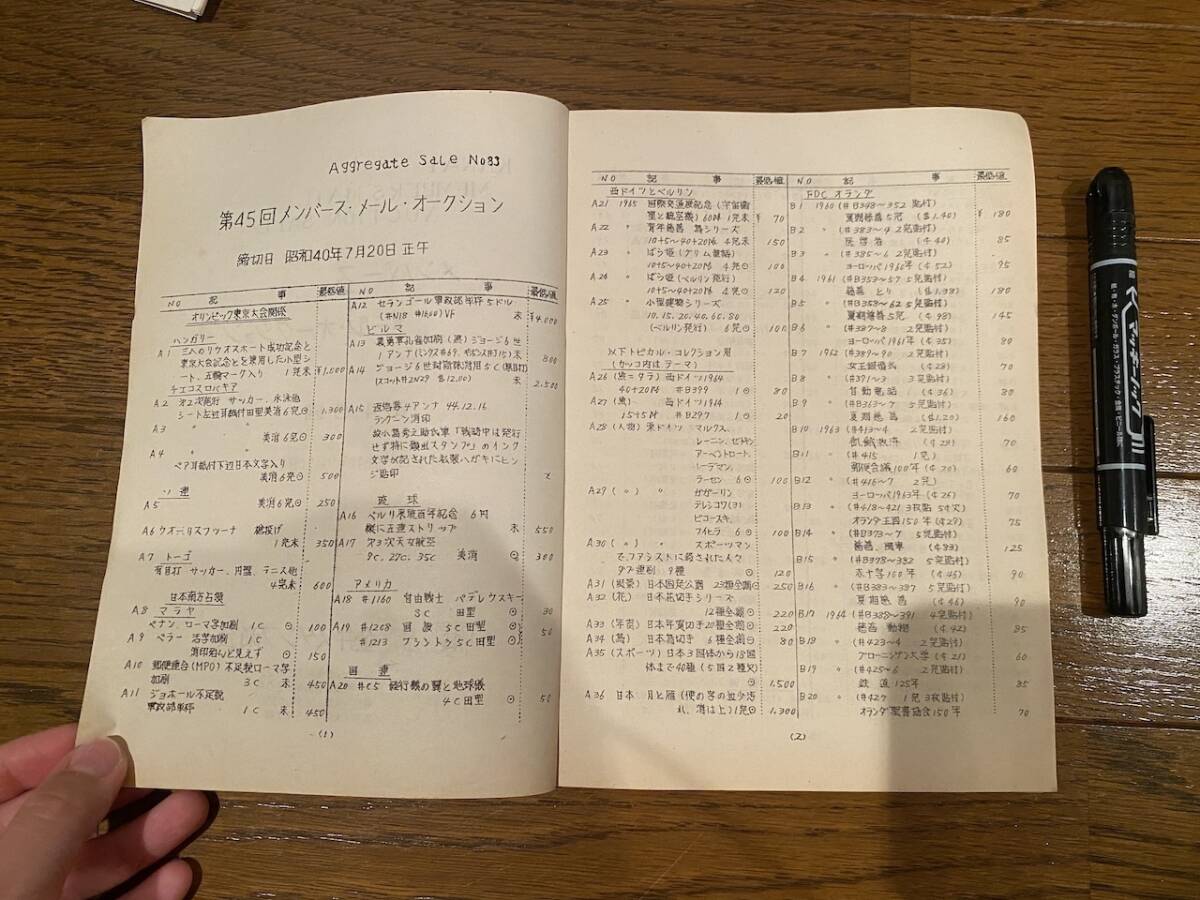 Aggregate Sale No83
第45回メンバース・メール・オークション
締切日 昭和40年7月20日 正午
NO 記 事 最低値
オリンピック東京大会関係
ハンガリー
A1
東京大会記念とを兼用した小型シ
ート、五輪マーク入り 1完未 ¥1,000
チェコスロバキア
A2 オ2次発行 サッカー、水泳他
シート左辺耳紙付田型美消6完⊙ 1,300
A3 〃
美消6完⊙ 300
A4 〃
ペア耳紙付下辺日本文字入り
美消6完⊙ 500
ソ連
A5 美消6完⊙ 250
A6 ウオーリスフツーナ 槍投げ
1完未 350
A7 トーゴ
有目打 サッカー、円盤、テニス他
4完未 600
日本南方占領
A8 マラヤ
ペナン、ローマ字加刷 1C ⊙ 100
A9 ペラー 漢字加刷 1C
消印殆んど見えず ⊙ 150
A10 郵便連合(MPO)不足税ローマ字
加刷 3C 未 450
A11 ジョホール不足税
軍政部半枠 1C 未 450
NO 記 事 最低値
A12 セランゴール軍政部半枠5ドル
(#N18 $16.50)VF 未 ¥4,000
ビルマ
A13
800
A14
(スコット#2N29 $12.00) 未 2,500
A15 返信券4アンナ 44.12.16
ラングーン消印
故小島秀之助氏筆「戦時中は発行
せず特に頒出スタンプ」のインク
文字が記された私製ハガキにヒン
ジ貼印 X
琉球
A16 ペルリ来航百年記念 6円
縦に五連ストリップ 未 550
A17 オ3次天女航空
9C、27C、35C 美消 ⊙ 300
アメリカ
A18 #1160 自由戦士 パデレウスキー
8C 田型 ⊙ 30
A19 #1208 国旗 5C田型 ⊙
#1213 ワシントン5C田型 ⊙ 50
国連
A20 #C5 飛行機の翼と地球儀
4C田型 ⊙ 50
(1)
NO 記 事 最低値
西ドイツとベルリン
A21 1965 国際交通展記念(宇宙衛
星と航空機)60Pf 1完未 ¥70
A22 〃 青年福祉 鳥シリーズ
10+5〜40+20Pf 4完未 150
A23 〃 ばら姫(グリム童話)
10+5〜40+20Pf 4完⊙ 100
A24 〃 ばら姫(ベルリン発行)
10+5〜40+20Pf 4完⊙ 120
A25 〃 小型建物シリーズ
10.15.20.40.60.80
(ベルリン発行) 6完⊙ 100
以下トピカル・コレクション用
(カッコ内はテーマ)
A26 西ドイツ1964
40+20Pf #B399 1⊙ 80
A27 (鳥) 西ドイツ1964
15+5Pf #B297 1⊙ 20
A28 (人物) 東ドイツ マルクス、
レーニン、ゼトキン
アーベントロート、
レーデマン、
ラーセン 6⊙ 100
A29 (〃) 〃 ガガーリン
テレシコワ(2)
ビコースキ、
フイヒラ 6⊙ 100
A30 (〃) 〃 スポーツマン
でファシストに殺された人々
タブ連刷 9種 ⊙ 120
A31 (風景) 日本国定公園 23種全額⊙ 250
A32 (花) 日本花切手シリーズ
12種全額⊙ 220
A33 (年賀) 日本年賀切手20種全額⊙ 220
A34 (鳥) 日本鳥切手 6種全額⊙ 80
A35 (スポーツ) 日本3回体から18回
体まで40種(5回2種欠)
⊙ 1,500
A36 日本 月と雁
1完⊙ 1,300
NO 記 事 最低値
FDC オランダ
B1 1960 (#B348〜352 貼付)
夏期慈善5完 ($1.40) ¥180
B2 〃 (#383〜4 2完貼付)
民警者 (¢40) 85
B3 〃 (#385〜6 2完貼付)
ヨーロッパ1960年(¢52) 95
B4 1961 (#B353〜57 5完貼付)
慈善 とり ($1.38) 180
B5 〃 (#B358〜62 5完貼付)
夏期慈善5完 (¢98) 145
B6 〃 (#387〜8 2完貼付)
ヨーロッパ1961年(¢35) 80
B7 1962 (#389〜90 2完貼付)
女王銀婚 (¢28) 70
B8 〃 (#391〜3 3完貼付)
自動電話 (¢36) 80
B9 〃 (#B363〜7 5完貼付)
夏期慈善 ($1.20) 160
B10 1963 (#413〜4 2完貼付)
飢餓救済 (¢23) 70
B11 〃 (#415 1完)
郵便会議100年(¢20) 60
B12 〃 (#416〜7 2完)
ヨーロッパ1963年(¢26) 70
B13 〃 (#418〜421 3枚貼 5¢欠)
オランダ王国150年(¢29) 75
B14 〃 (#B373〜7 5完貼付)
慈善、風車 (¢83) 125
B15 〃 (#B378〜382 5完貼付)
赤十字150年 (¢45) 90
B16 〃 (#B383〜387 5完貼付)
夏期慈善 (¢46) 90
B17 1964 (#B388〜391 4完貼付)
慈善 動物 (¢42) 85
B18 〃 (#423〜4 2完貼付)
グローニンゲン大学(¢21) 60
B19 〃 (#425〜6 2完貼付)
鉄道125年 85
B20 〃 (#427 1完3枚貼付)
オランダ聖書協会150年 70
(2)
マッキーノック